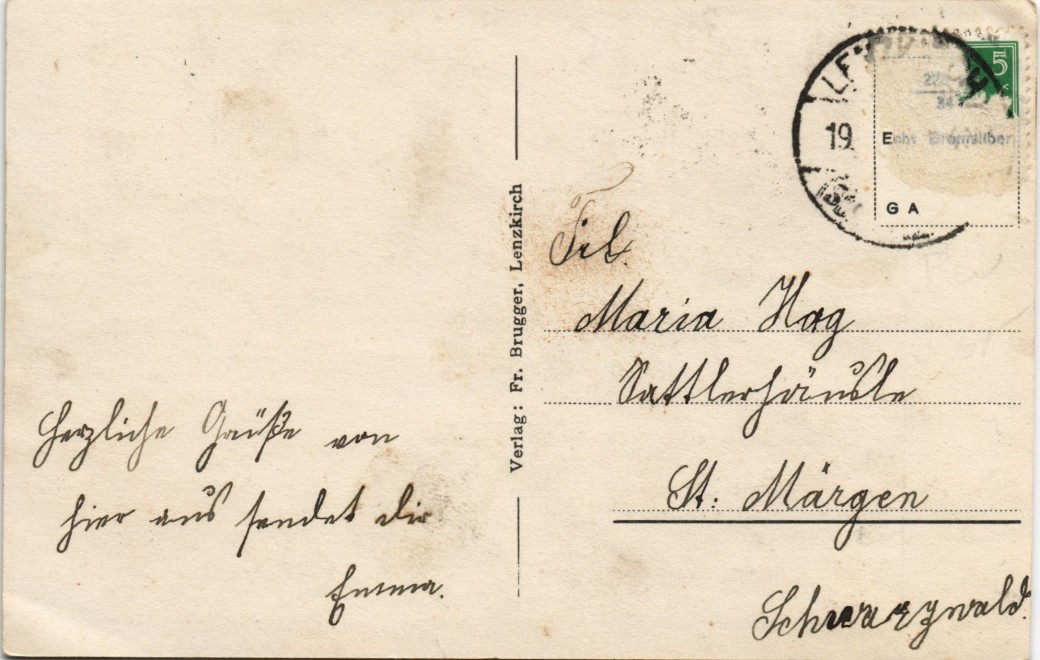 Herzliche Grüße von
hier aus sendet dir
Emma.
Verlag: Fr. Brugger, Lenzkirch
5
19.
34
Echt Bromsilber
G A
Frl.
Maria Hog
Sattlerhäusle
St. Märgen
Schwarzwald.